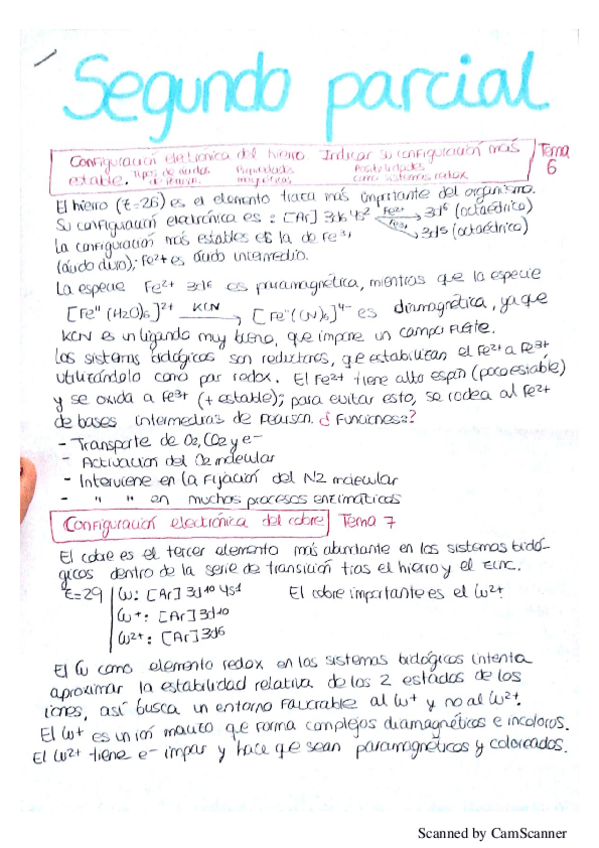 Segundo parcial
Configuración electrónica del hierro. Indicar su configuración más Tema
estable. Tipos de ácidos de Pearson. Propiedades magnéticas Posibilidades como sistemas redox 6
El hierro (Z=26) es el elemento traza más importante del organismo.
Su configuración electrónica es: [Ar] 3d6 4s2 Fe2+ 3d6 (octaédrico)
Fe3+ 3d5 (octaédrico)
La configuración más estables es la de Fe3+
(ácido duro); Fe2+ es ácido intermedio.
La especie Fe2+ 3d6 es paramagnética, mientras que la especie
[Fe"(H2O)6]2+ KCN [Fe"(CN)6]4- es diamagnética, ya que
KCN es un ligando muy bueno, que impone un campo fuerte.
Los sistemas biológicos son reductores, qe estabilizan el Fe2+ a Fe3+
utilizándolo como par redox. El Fe2+ tiene alto espín (poco estable)
y se oxida a Fe3+ (+ estable); para evitar esto, se rodea al Fe2+
de bases intermedias de Pearson. ¿Funciones?
- Transporte de O2, CO2 y e-
- Activación del O2 molecular
- Interviene en la fijación del N2 molecular
- " " en muchos procesos enzimáticos
Configuración electrónica del cobre Tema 7
El cobre es el tercer elemento más abundante en los sistemas bioló-
gicos dentro de la serie de transición tras el hierro y el zinc.
Z=29 Cu: [Ar] 3d10 4s1 El cobre importante es el Cu2+
Cu+: [Ar] 3d10
Cu2+: [Ar] 3d6
El Cu como elemento redox en los sistemas biológicos intenta
aproximar la estabilidad relativa de los 2 estados de los
iones, así busca un entorno favorable al Cu+ y no al Cu2+.
El Cu+ es un ión que forma complejos diamagnéticos e incoloros.
El Cu2+ tiene e- impar y hace qe sean paramagnéticos y coloreados.
Scanned by CamScanner